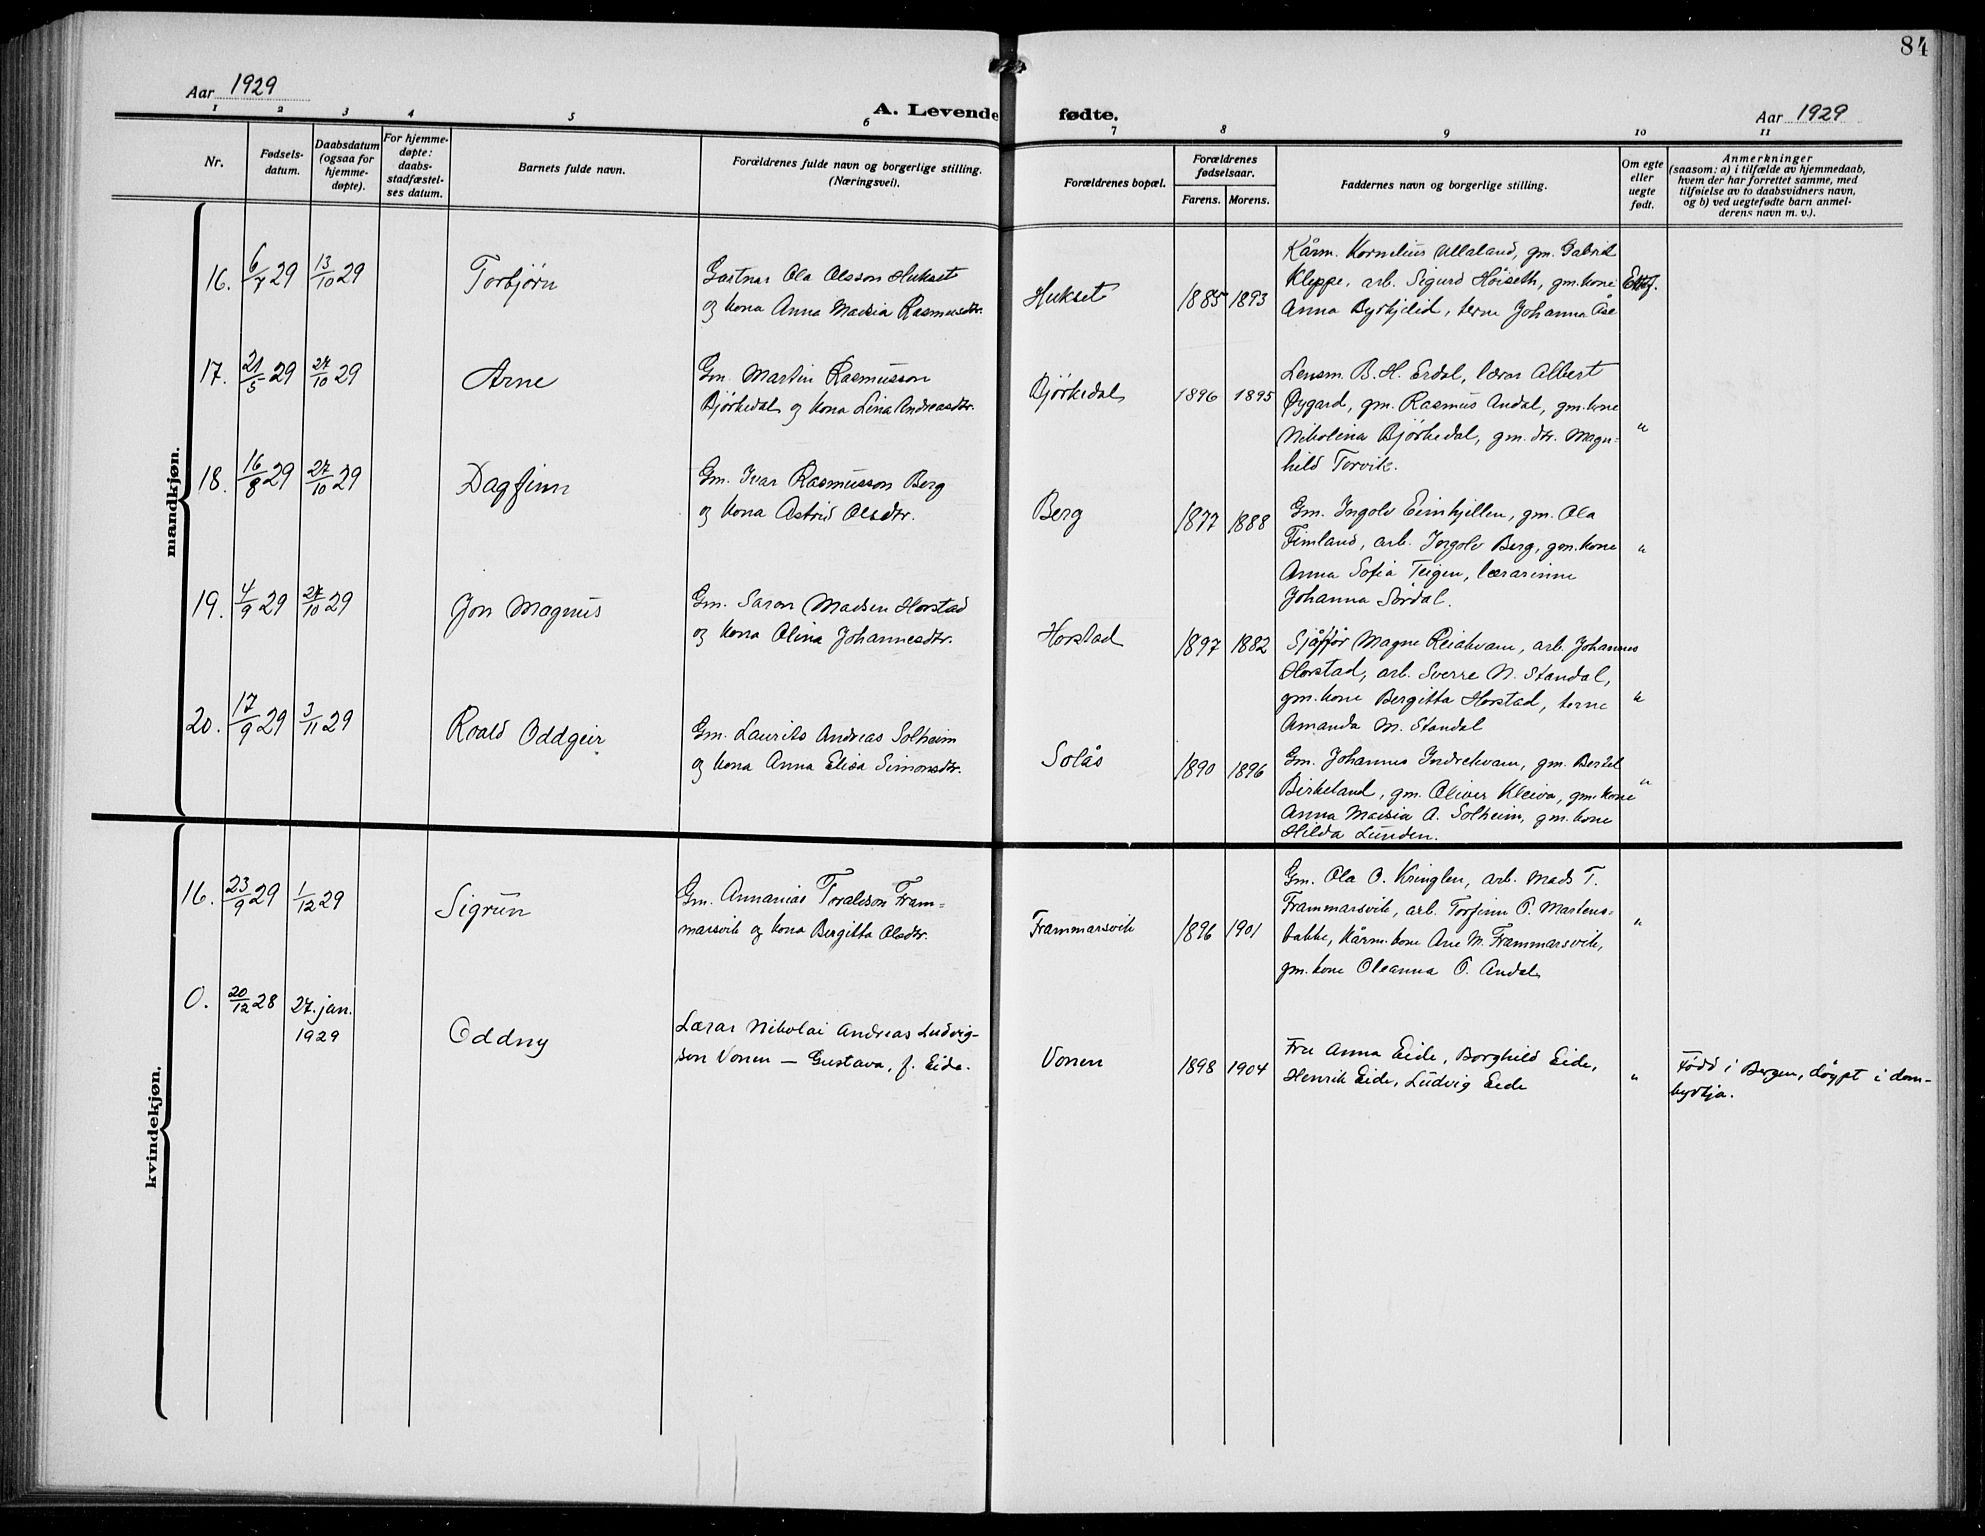 84
Aar 1929
A. Levende fødte.
Aar 1929
1 2 3 4 5 6 7 8 9 10 11
Nr.
Fødsels-
datum.
Daabsdatum
(ogsaa for
hjemme-
døpte).
For hjemme-
døpte:
daabs-
stadfæstel-
ses datum.
Barnets fulde navn.
Forældrenes fulde navn og borgerlige stilling.
(Næringsvei).
Forældrenes bopæl.
Forældrenes
fødselsaar.
Farens. Morens.
Faddernes navn og borgerlige stilling.
Om egte
eller
uegte
født.
Anmerkninger
(saasom: a) i tilfælde av hjemmedaab,
hvem der har forrettet samme, med
tilføielse av to daabsvidners navn,
og b) ved uegtefødte barn anmel-
derens navn m. v.).
mandkjøn.
16. 6/7 29 13/10 29
Torbjørn
Gartnar Ola Olsson Hukset
og kona Anna Maria Rasmusdtr.
Hukset
1885 1893
Kårm. Kornelius Ullaland, gm. Gabriel
Kleppe, arb. Sigurd Høiseth, gm. kone
Anna Byrkjelid, terne Johanna Åse
Ektef.
17. 21/5 29 27/10 29
Arne
Gm. Martin Rasmusson
Bjørkedal og kona Lina Andreasdtr.
Bjørkedal
1896 1895
Lensm. B. H. Erdal, lærar Albert
Øygard, gm. Rasmus Andal, gm. kone
Nikolina Bjørkedal, gm. dtr. Magn-
hild Torvik.
"
18. 16/8 29 27/10 29
Dagfinn
Gm. Ivar Rasmusson Berg
og kona Astrid Olsdtr.
Berg
1877 1888
Gm. Ingolv Eimhjellen, gm. Ola
Fimland, arb. Ingolv Berg, gm. kone
Anna Sofia Teigen, lærarinne
Johanna Sørdal.
"
19. 4/9 29 27/10 29
Jon Magnus
Gm. Saron Madsen Horstad
og kona Olina Johannesdtr.
Horstad
1897 1882
Sjåffør Magne Reiakvam, arb. Johannes
Horstad, arb. Sverre N. Standal,
gm. kone Bergitta Horstad, terne
Amanda M. Standal
"
20. 17/9 29 3/11 29
Roald Oddgeir
Gm. Laurits Andreas Solheim
og kona Anna Elisa Simonsdtr.
Solås
1890 1896
Gm. Johannes Indrekvam, gm. Bertel
Birkeland, gm. Oliver Kleiva, gm. kone
Anna Maria A. Solheim, gm. kone
Hilda Lunden.
"
kvindekjøn.
16. 23/9 29 1/12 29
Sigrun
Gm. Annanias Toralsson Fram-
marsvik og kona Bergitta Olsdtr.
Frammarsvik
1896 1901
Gm. Ola O. Kringlen, arb. Mads T.
Frammarsvik, arb. Torfinn O. Martens-
bakke, Kårm. kone Ane M. Frammarsvik,
gm. kone Oleanna O. Andal
"
0. 20/12 28 27. jan.
1929
Oddny
Lærar Nikolai Andreas Ludvig-
son Vonen — Gustava, f. Eide.
Vonen
1898 1904
Fru Anna Eide, Borghild Eide,
Henrik Eide, Ludvig Eide
"
Fødd i Bergen, døypt i dom-
kyrkja.